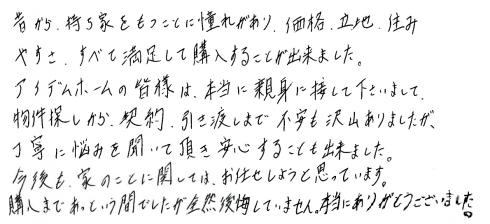 昔から、持ち家をもつことに憧れがあり、価格、立地、住み
やすさ、すべて満足して購入することが出来ました。
アイデムホームの皆様は、本当に親身に接して下さいまして、
物件探しから、契約、引き渡しまで不安も沢山ありましたが、
丁寧に悩みを聞いて頂き安心することも出来ました。
今後も、家のことに関しては、お任せしようと思っています。
購入まであっという間でしたが全然後悔していません。本当にありがとうございました。